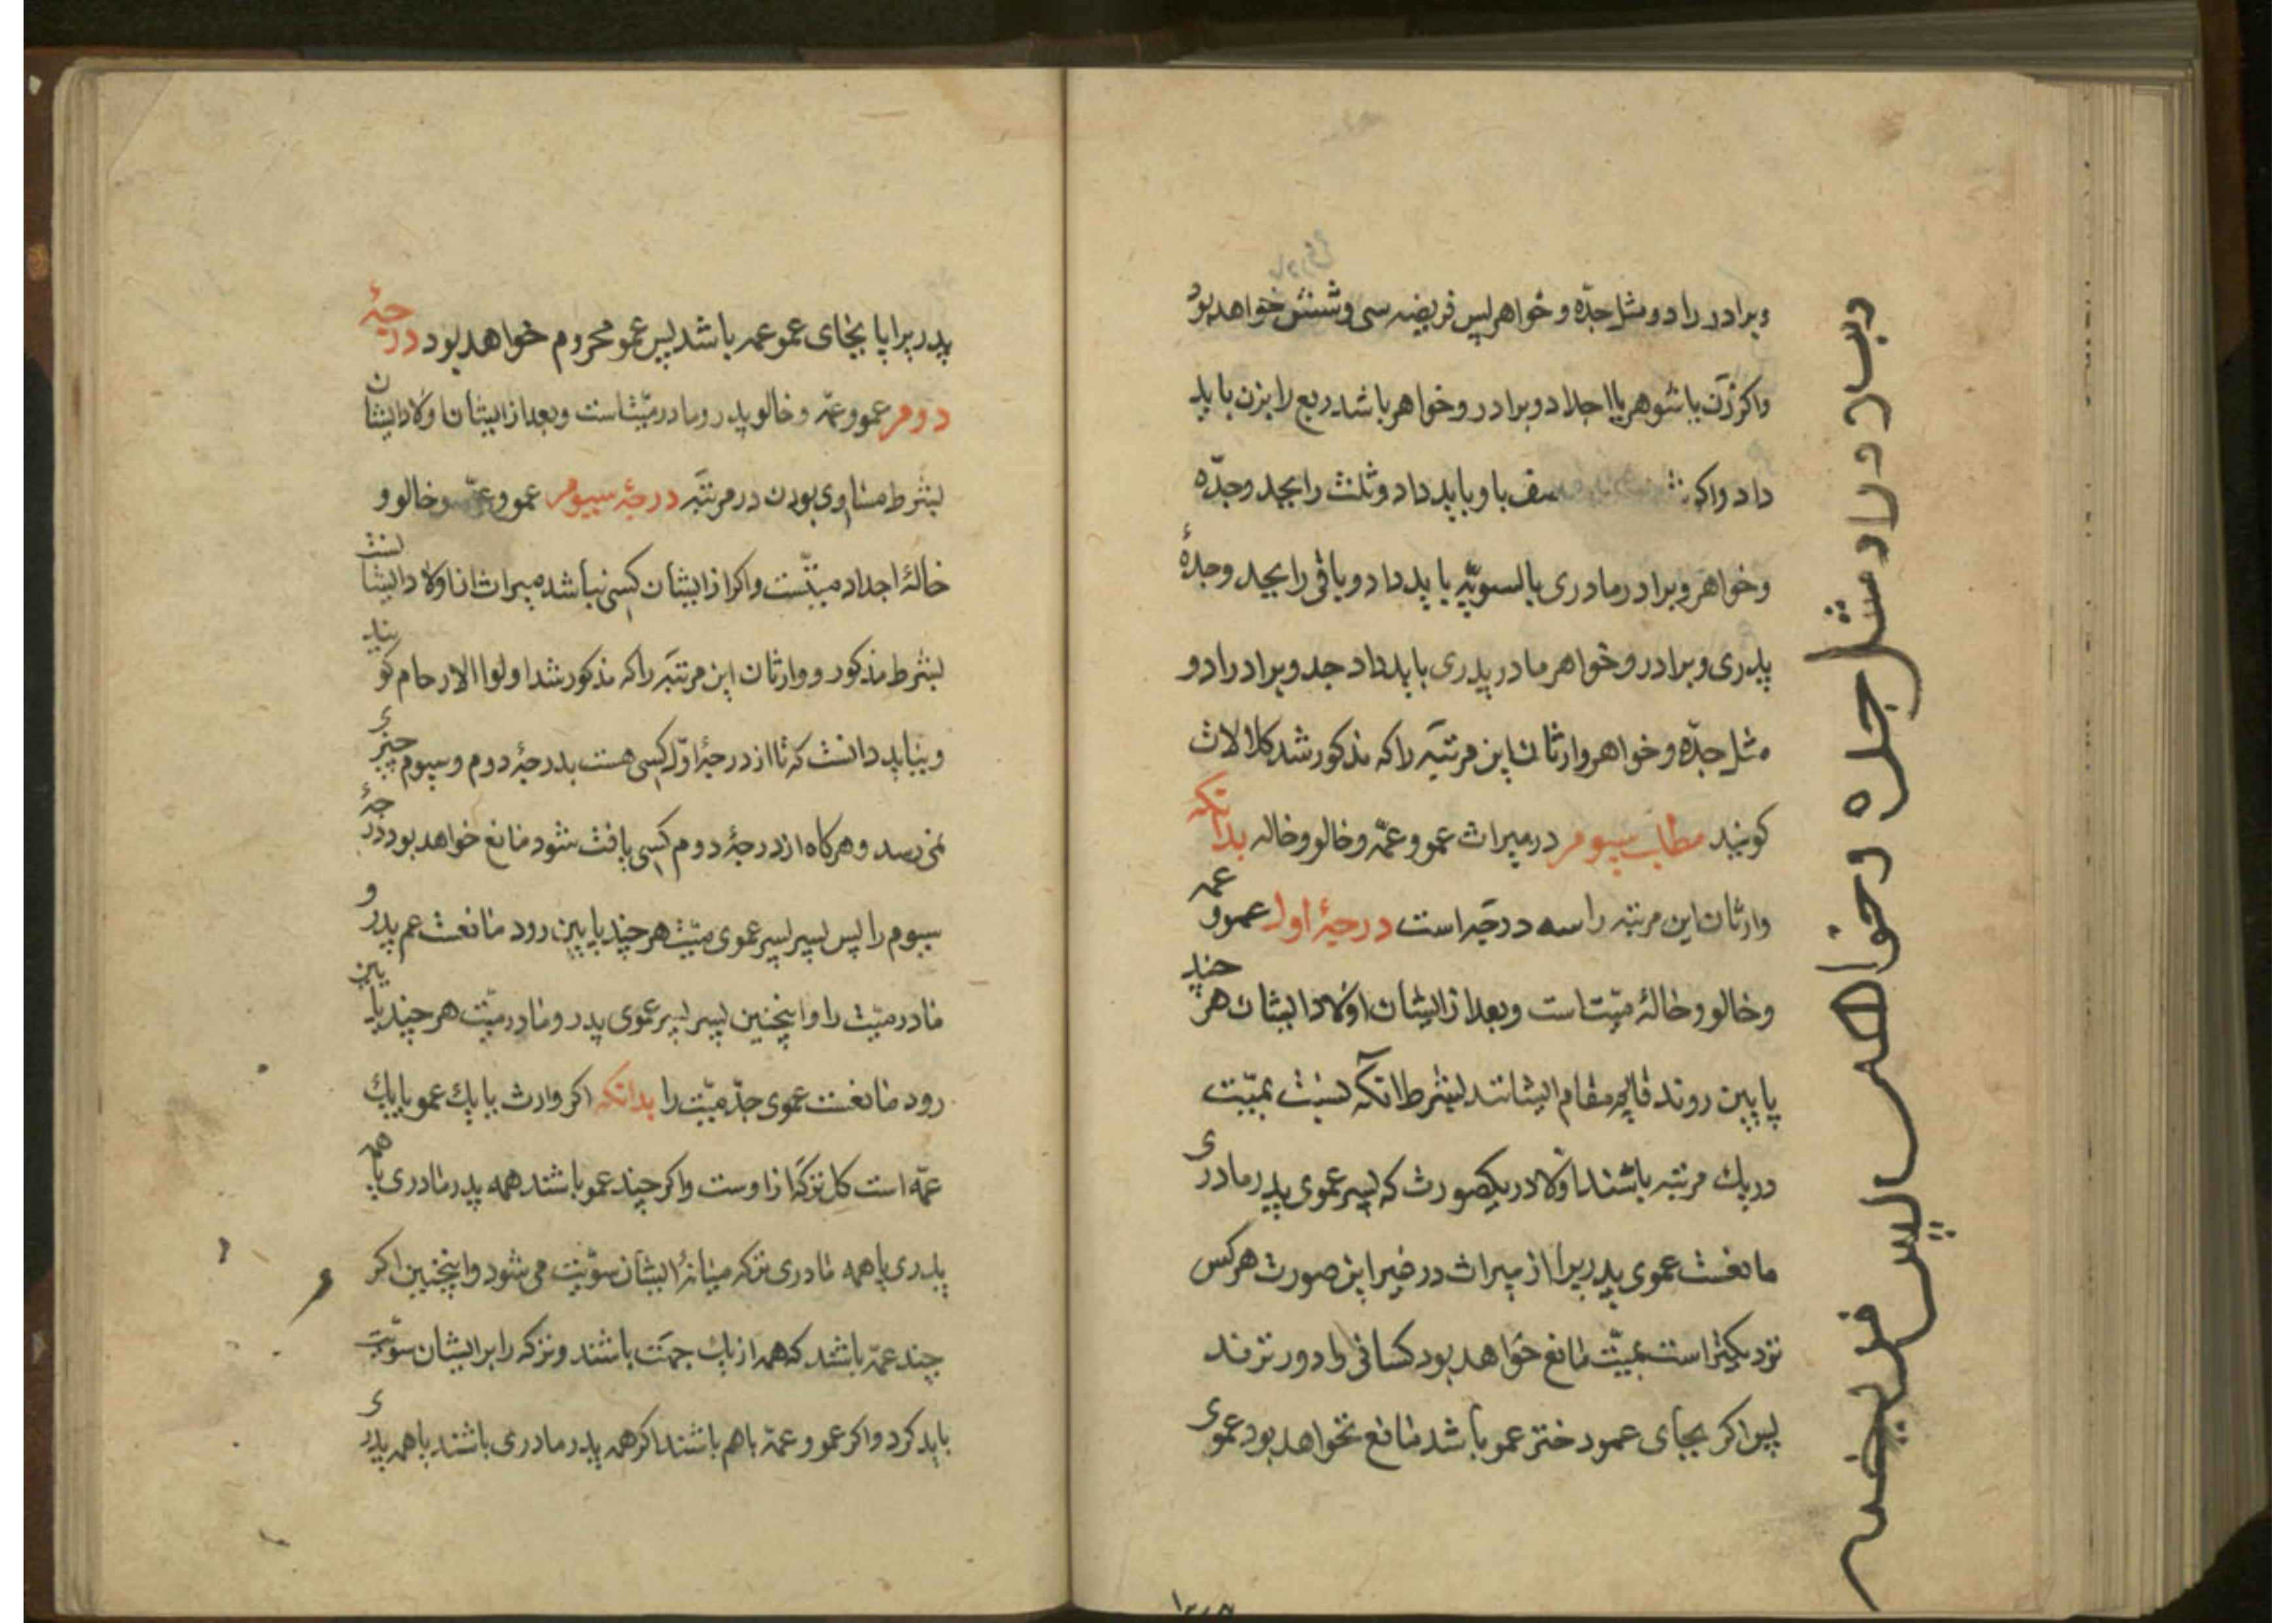 وبرادر را دو مثل جدّه و خواهر پس فریضه سی و شش خواهد بود
واکر زن یا شوهر با اجداد و برادر و خواهر باشد ربع را بزن باید
داد واکر نصف باو باید داد و ثلث را بجد وجدّه
وخواهر و برادر مادری بالسویّه باید داد و باقی را بجد وجدهٔ
پدری و برادر و خواهر مادر پدری باید داد جد و برادر را دو
مثل جدّه و خواهر وارثان این مرتبه را که مذکور شد کلالات
کویند مطلب سیوم در میراث عمو و عمّه و خالو و خاله بدانکه
وارثان این مرتبه را سه درجه است درجهٔ اول عمو و عمه
وخالو و خالهٔ میّت است وبعد از ایشان اولاد ایشان هر چند
پایین روند قایم مقام ایشانند بشرط آنکه نسبت بمیّت
در یک مرتبه باشند الّا در یکصورت که پسر عموی پدر مادری
مانعست عموی پدریرا از میراث در غیر این صورت هر کس
نزدیکتر است بمیّت مانع خواهد بود کسانی را دورترند
پس اکر بجای عمو دختر عمو باشد مانع نخواهد بود عموی
پدریرا یا بجای عمو عمه باشد پس عمو محروم خواهد بود درجهٔ
دوم عمو و عمّه و خالو پدر و مادر میّت است وبعد از ایشان اولاد ایشان
بشرط مساوی بودن در مرتبه درجهٔ سیوم عمو و عمّه وخالو و
خالهٔ اجداد میّتست واکر از ایشان کسی نباشد میراث از اولاد ایشانست
بشرط مذکور و وارثان این مرتبه را که مذکور شد اولوا الارحام کویند
وبباید دانست که تا از درجهٔ اوّل کسی هست بدرجهٔ دوم و سیوم چیزی
نمی رسد و هرکاه از درجهٔ دوم کسی یافت شود مانع خواهد بود درجهٔ
سیوم را پس پسر پسر عموی میّت هر چند پایین رود مانعست عم پدر و
مادر میّت را و اینچنین پسر پسر عموی پدر و مادر میّت هر چند پایین
رود مانعست عموی جدّ میّت را بدانکه اکر وارث یا یک عمو یا یک
عمّه است کل ترکه از اوست واکر چند عمو باشند همه پدر مادری یا همه
پدری یا همه مادری ترکه میانهٔ ایشان سویّت می شود واینچنین اکر
چند عمّه باشند که همه از یک جهت باشند و ترکه را بر ایشان سویّت
باید کرد واکر عمو و عمّه باهم باشند اکر همه پدر مادری باشند یا همه پدری
وبرادر را دو مثل جده و خواهر پس فریضه